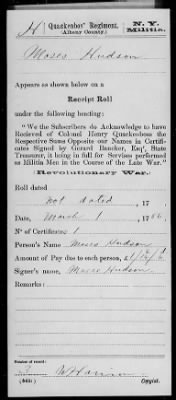 H
Quackenbos' Regiment,
(Albany County.)
N. Y.
Militia.
Moses Hudson
Appears as shown below on a
Receipt Roll
under the following heading:
"We the Subscribers do Acknowledge to have
Recieved of Colonel Henry Quackenboss the
Respective Sums Opposite our Names in Certifi-
cates Signed by Gerard Bancker, Esqr, State
Treasurer, it being in full for Services performed
as Militia Men in the Course of the Late War."
(Revolutionary War.)
Roll dated
not dated, 17
Date, March 1, 17
No of Certificates 1
Person's Name Moses Hudson
Amount of Pay due to each person, £
Signer's name, Moses Hudson
Remarks:
Number of record:
Copyist.